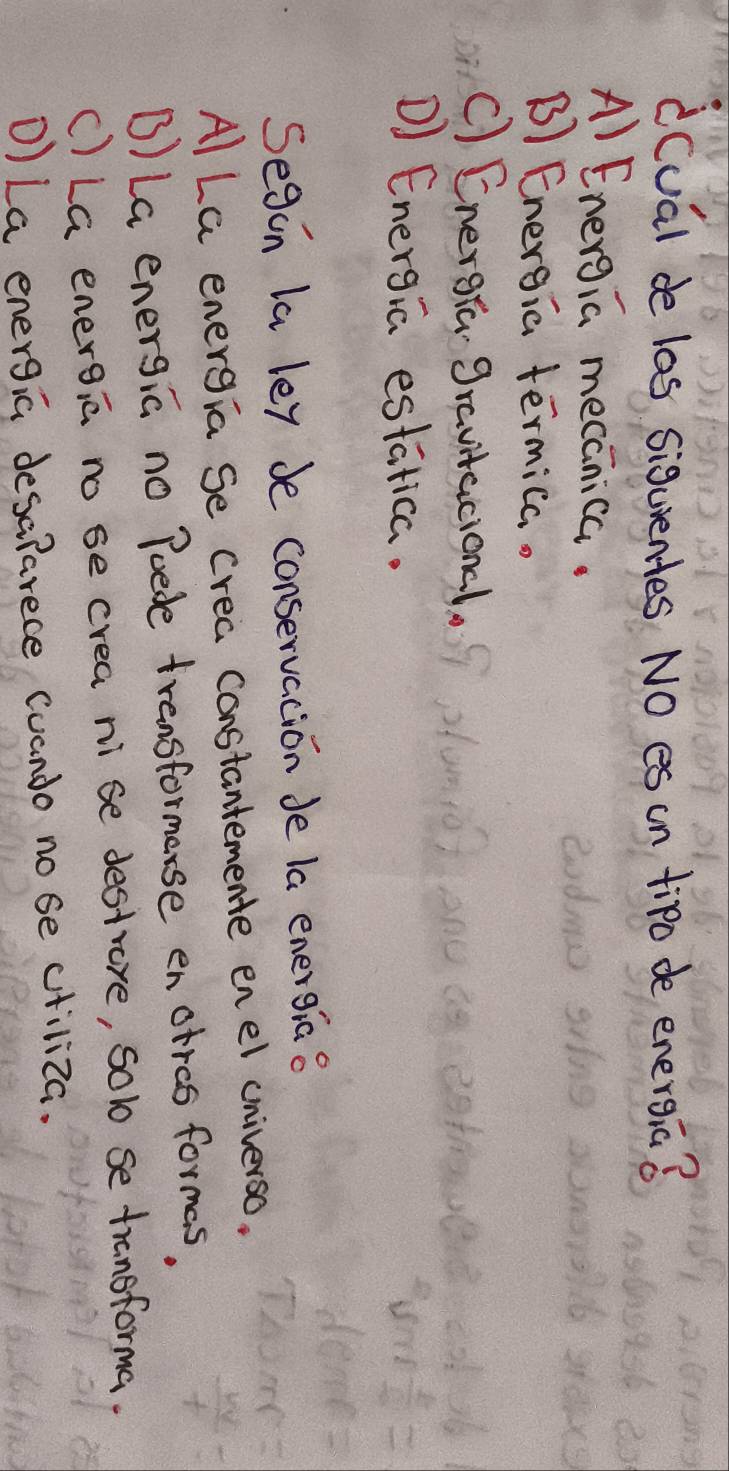 ¿Cuál de las siguientes NO es un tipo de energía?
A) Energía mecánica.
B) Energía térmica.
C) Energía gravitacional.
D) Energía estática.
Según la ley de conservación de la energía:
A) La energía se crea constantemente en el universo.
B) La energía no puede transformarse en otras formas.
C) La energía no se crea ni se destruye, solo se transforma.
D) La energía desaparece cuando no se utiliza.